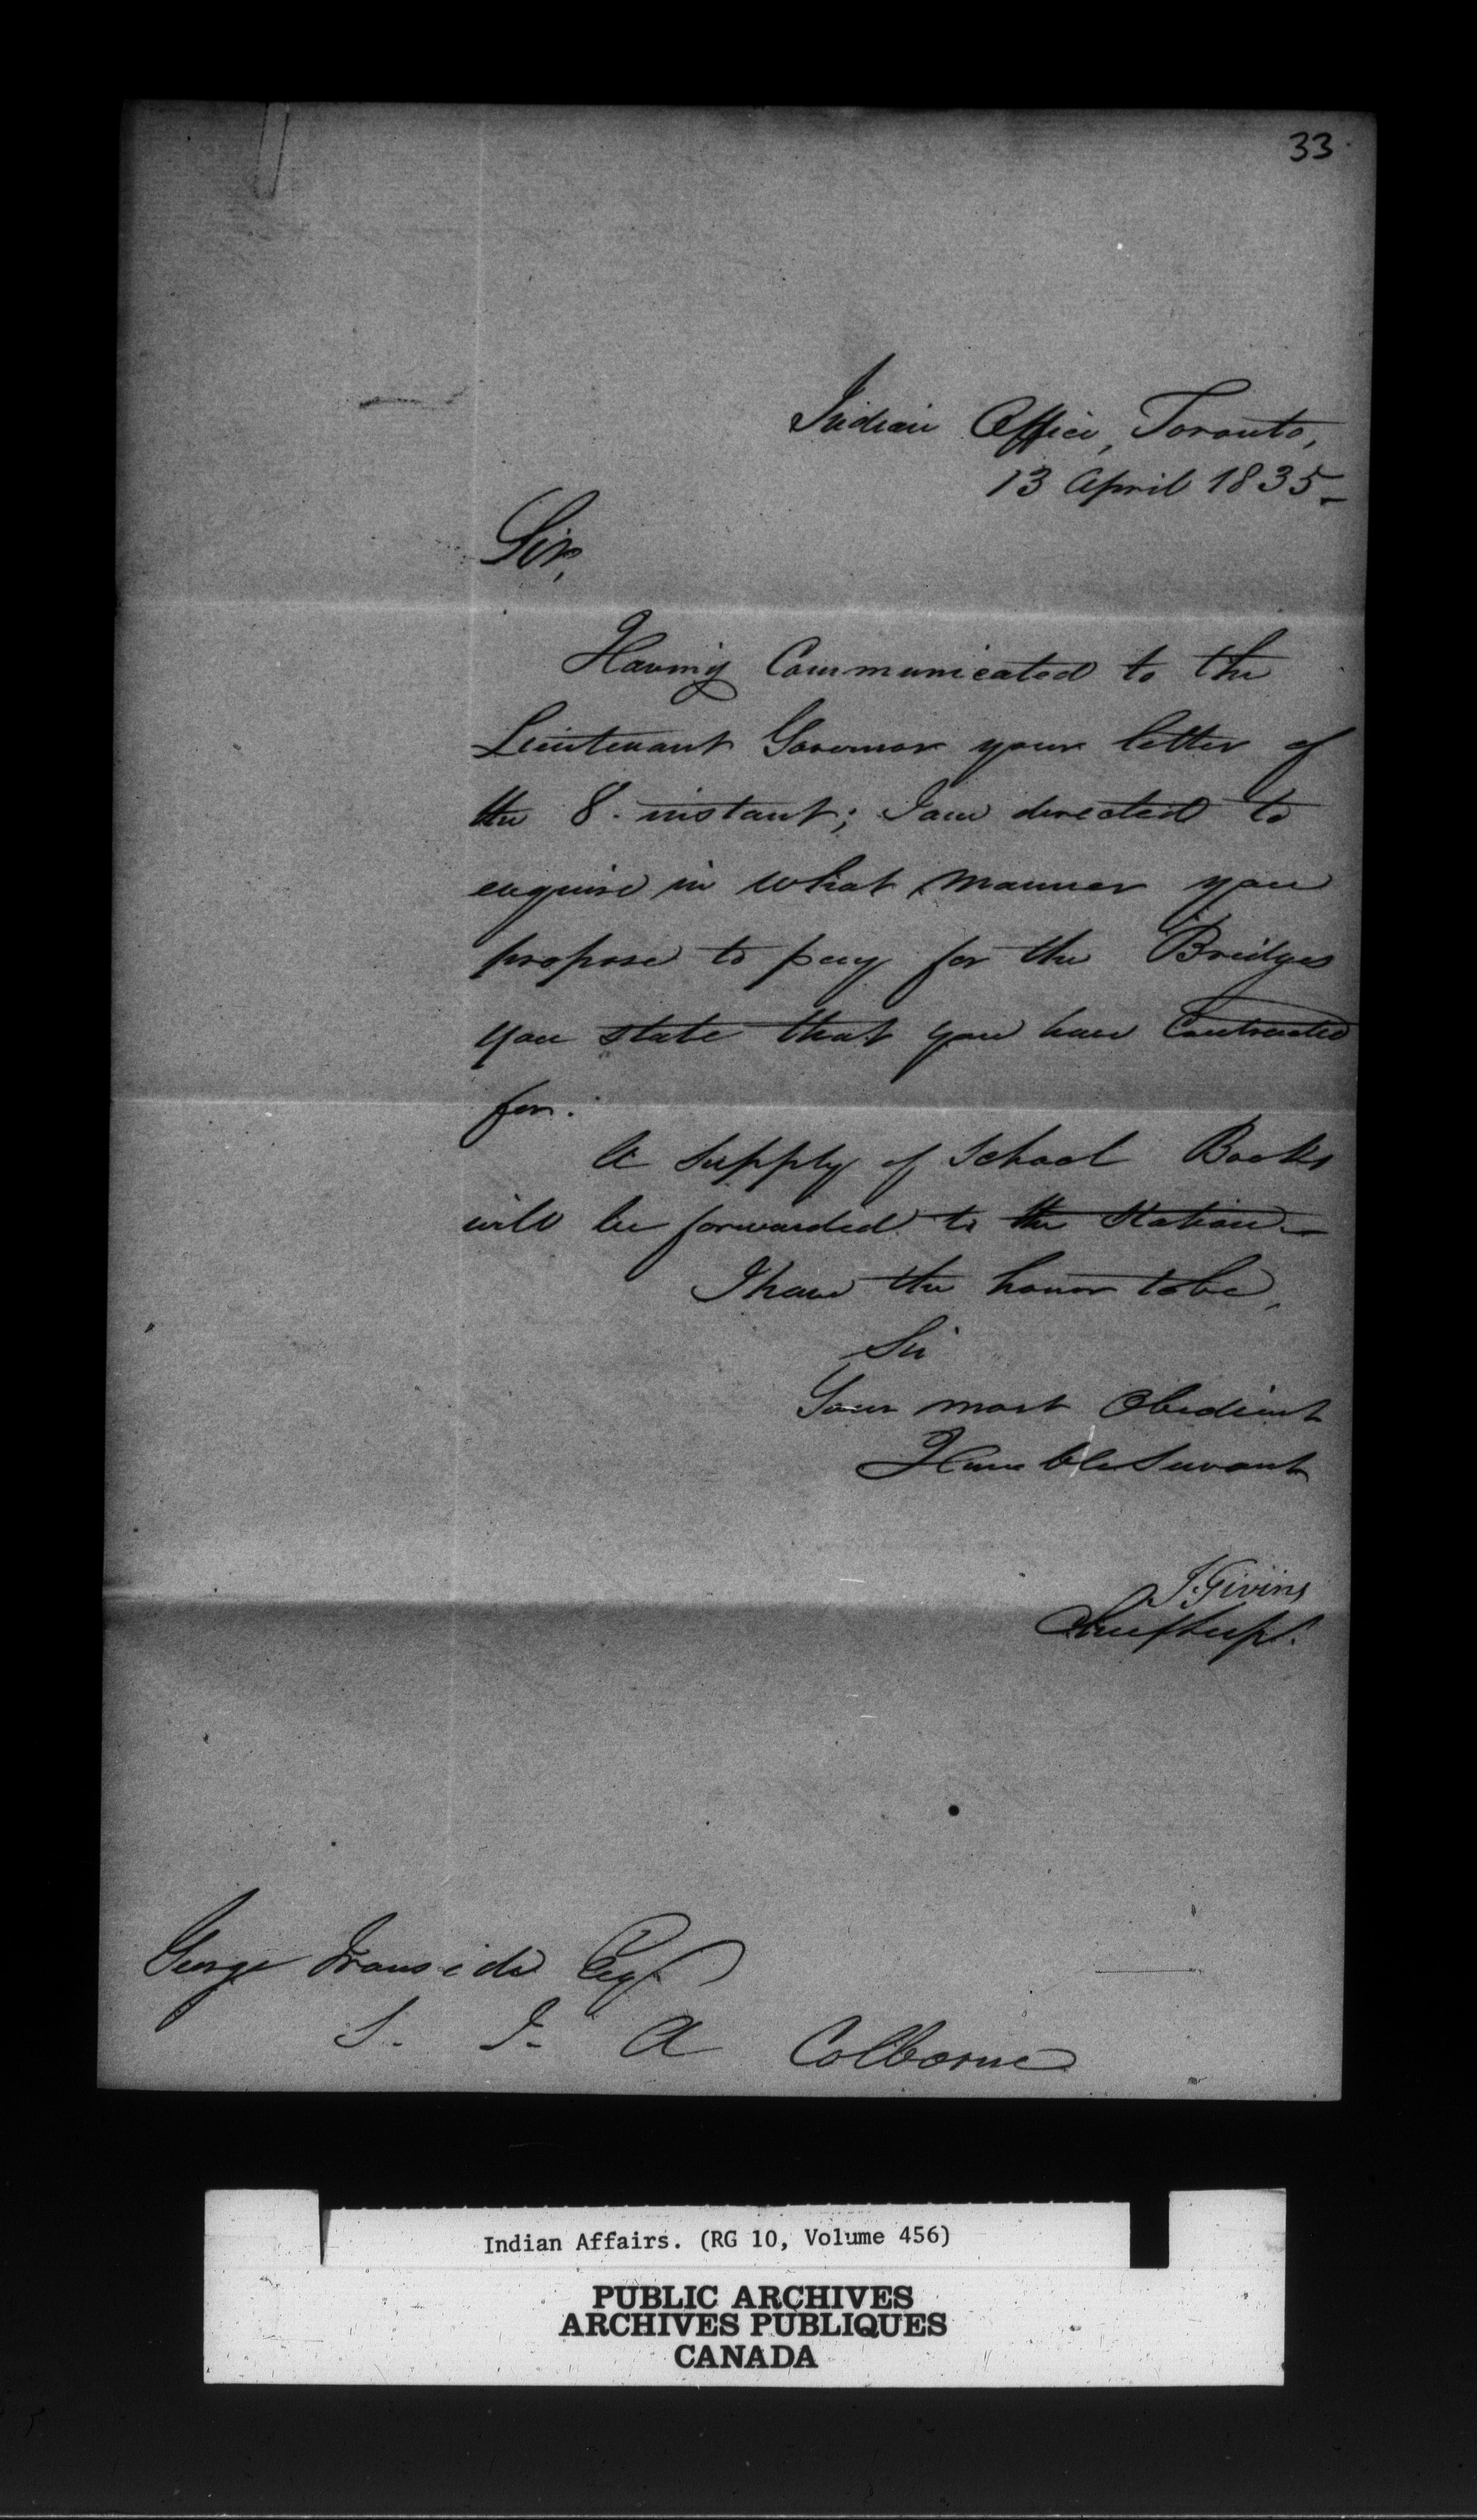 33
Indian Office, Toronto,
13 April 1835-
Sir,
Having Communicated to the
Lieutenant Governor your letter of
the 8. instant; I am directed to
enquire in what manner you
propose to pay for the Bridges
you state that you have Contracted
for.
A Supply of School Books
will be forwarded to the Station_
I have the honor to be,
Sir
Your most Obedient
Humble Servant
J. Givins
Chief Supt.
George Ironside Esqr
S. I. A Colborne
Indian Affairs. (RG 10, Volume 456)
PUBLIC ARCHIVES
ARCHIVES PUBLIQUES
CANADA